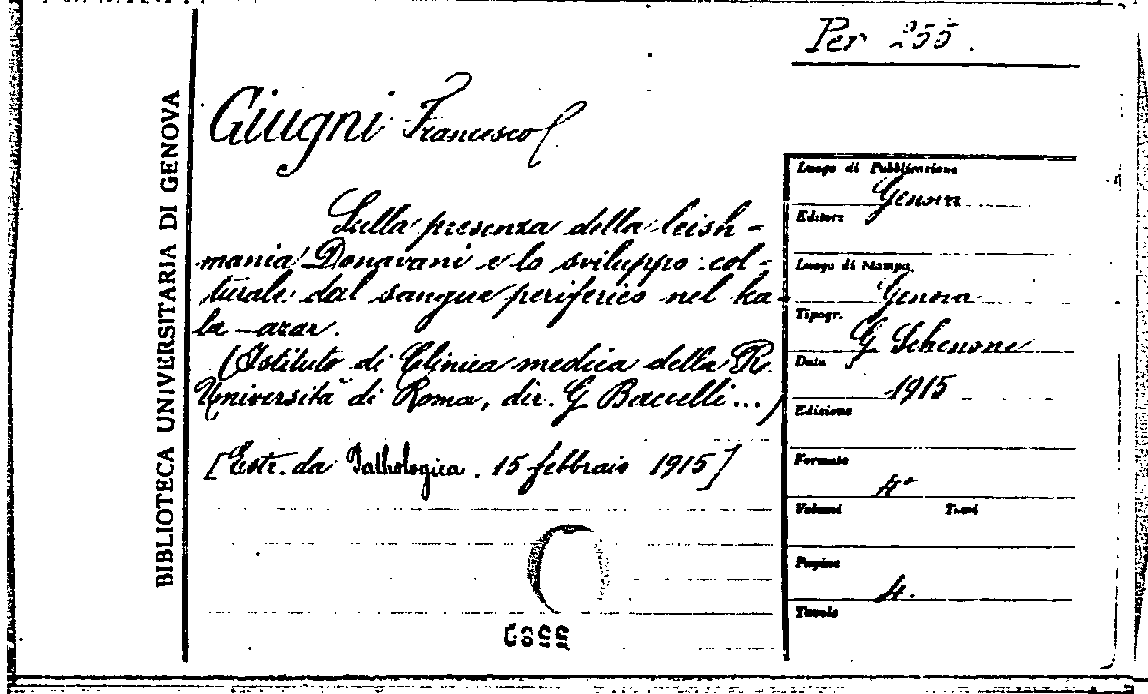 Per 255.
BIBLIOTECA UNIVERSITARIA DI GENOVA
Giugni Francesco
Sulla presenza della leish-
mania Donavani e lo sviluppo col-
turale dal sangue periferico nel ka-
la-azar.
(Istituto di Clinica medica della R.
Università di Roma, dir. G. Baccelli...)
[Estr. da Pathologica. 15 febbraio 1915]
Luogo di Pubblicazione
Genova
Editore
Luogo di Stampa
Genova
Tipogr.
G. Schenone
Data
1915
Edizione
Formato
4°
Volumi Tomi
Pagine
4.
Tavole